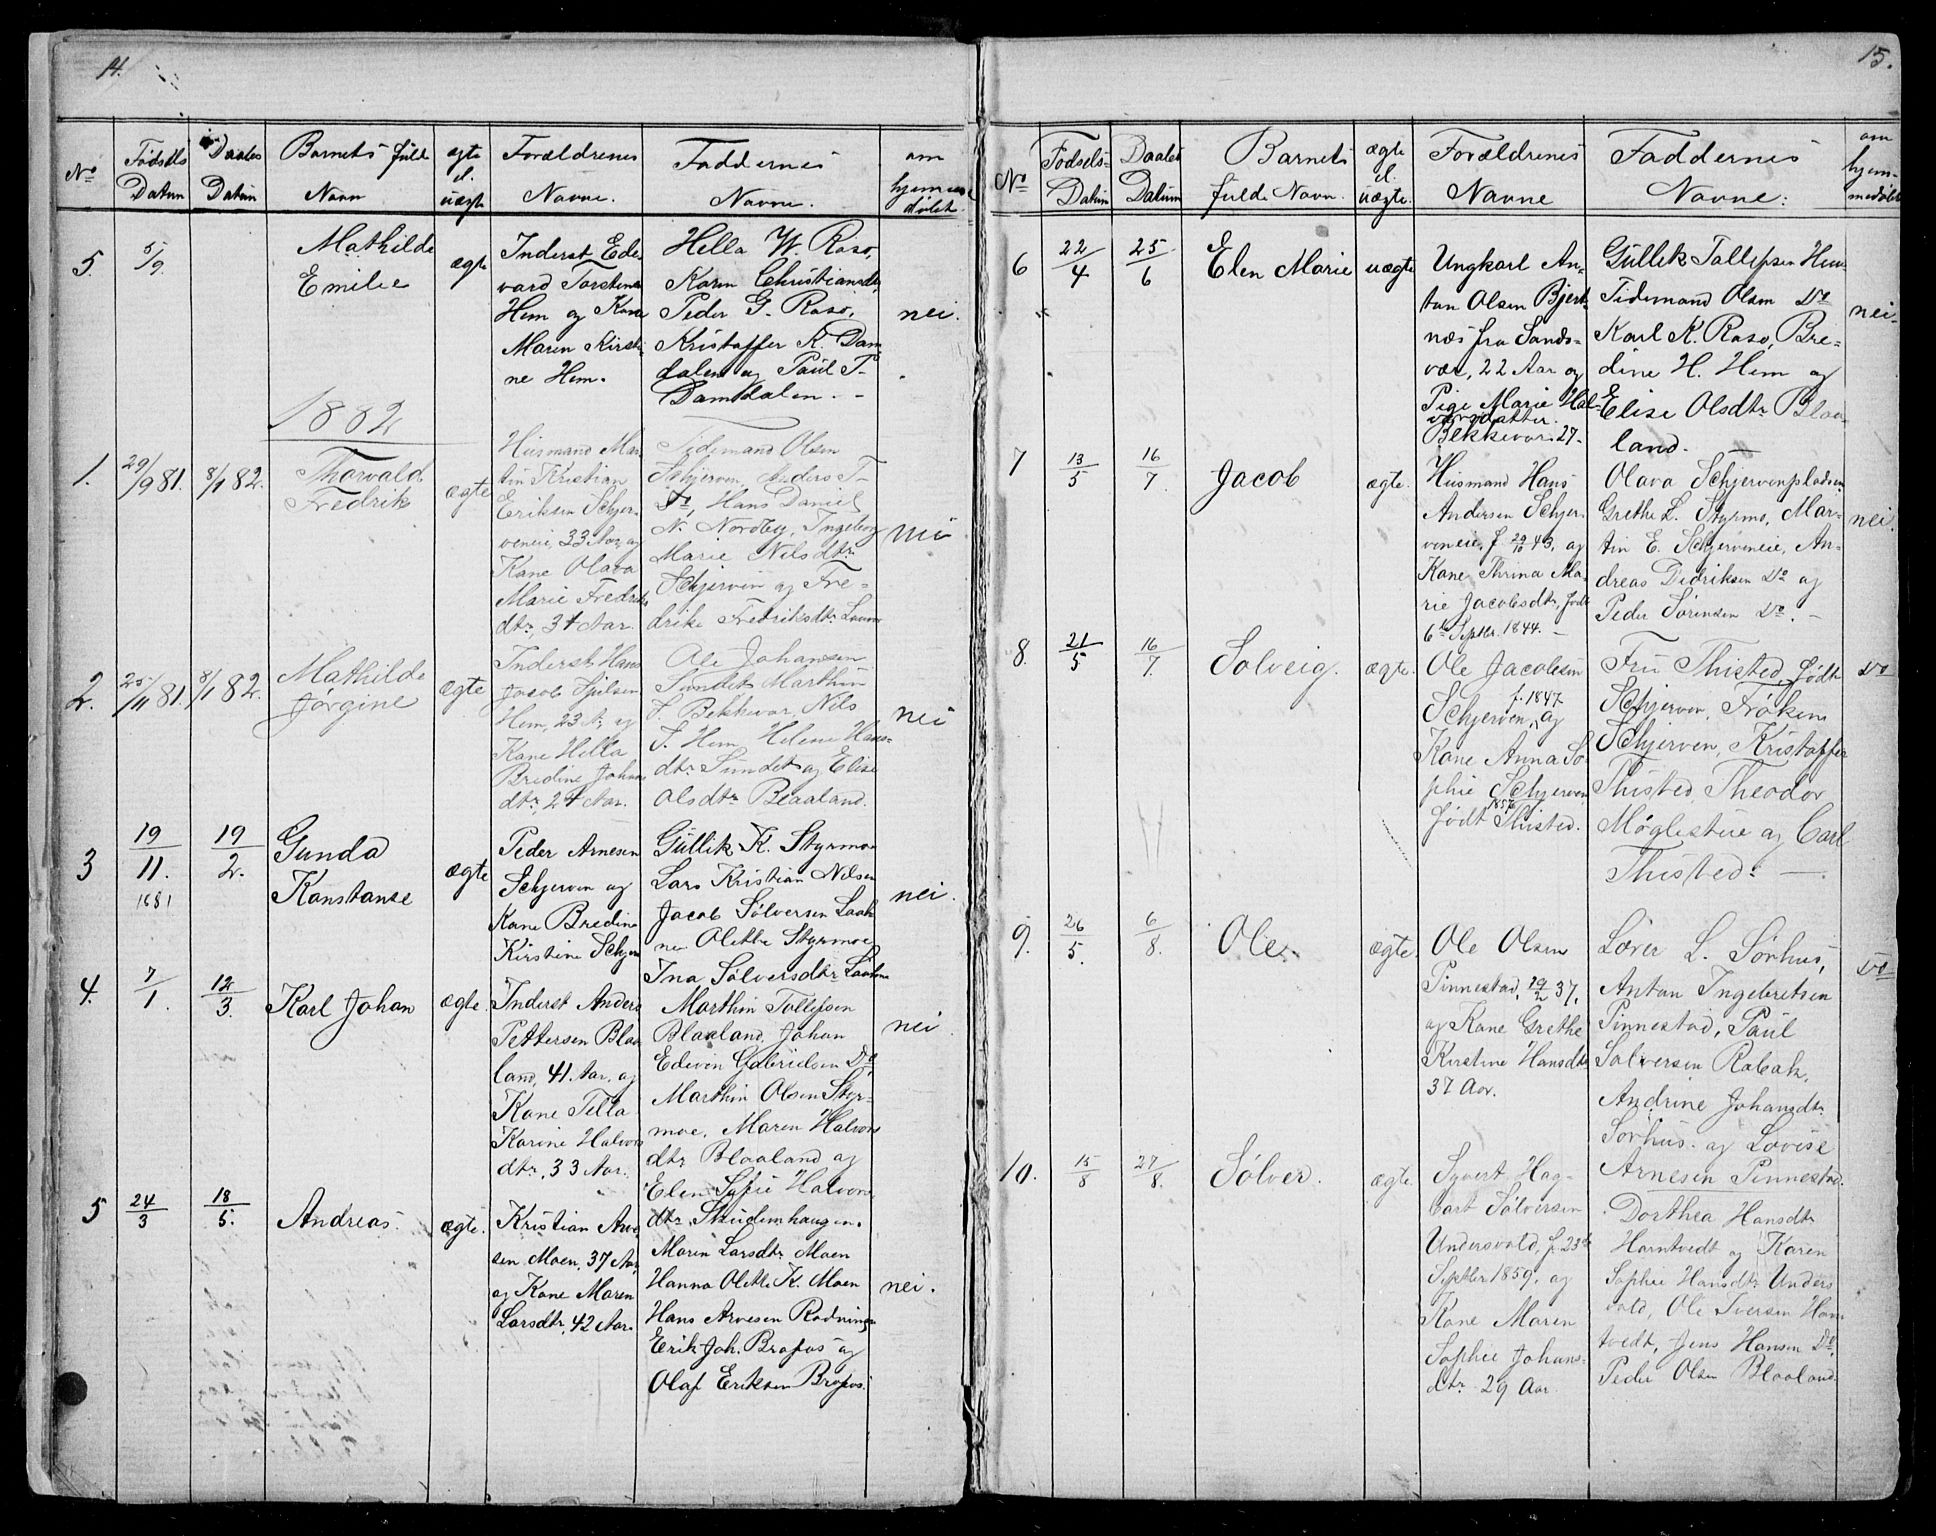 14.
No
Fødsels Datum
Daabs Datum
Barnets fulde Navn
ægte el. uægte
Forældrenes Navne.
Faddernes Navne.
om hjemmedøbt
5.
5/9.
Mathilde
Emilie
ægte
Inderst Ed-
vard Torstens
Hem og Kone
Maren Kirsti-
ne Hem.
Hella W. Raso,
Karen Christiansdtr
Peder G. Raso,
Kristoffer K. Dam-
dalen og Paul T.
Damdalen. -
nei.
1882
1.
29/9 81.
8/1 82.
Thorvald
Fredrik
ægte
Husmand Mar-
tin Kristian
Eriksen Schjer-
veneie, 33 Aar, og
Kone Olava
Marie Fredriks
dtr. 34 Aar.
Tidemand Olsen
Schjerven, Anders T-
Do, Hans Daniel
N. Nordby, Ingeborg
Marie Nilsdtr.
Schjerven og Fre-
drike Fredriksdtr
nei
2.
25/11 81.
8/1 82.
Mathilde
Jørgine
ægte
Inderst Hans
Jacob
Hem, 23 A. og
Kone Hella
Bredine Johans
dtr. 24 Aar.
Ole Johansen
Sundet Marthin
J. Bekkevar, Nils
J. Hem, Helene Hans-
dtr. Sundet og Elise
Olsdtr. Blaaland.
nei
3
19/11.
1881
19/2.
Gunda
Konstanse
ægte
Peder Arnesen
Schjerven og
Kone Bredine
Kirstine Schjer
Gullik K. Styrmo
Lars Kristian Nilsen
Jacob Sølversen
Olette Styrmoe
Ina Sølversdtr
nei.
4.
7/1.
12/3.
Karl Johan
ægte.
Inderst Anders
Pettersen Blaa-
land, 41. Aar, og
Kone Tella
Karine Halvors
dtr., 33 Aar.
Marthin Tollefsen
Blaaland, Johan
Edvin Gabrielsen Do,
Marthin Olsen Styr-
moe, Maren Halvors
dtr Blaaland og
Elen Sofie Halvors
dtr. Studemhaugen.
nei
5
24/3
18/5.
Andreas.
ægte.
Kristian Arve-
sen Moen, 37 Aar,
og Kone Maren
Larsdtr, 42 Aar.
Maren Larsdtr. Moen
Hanna Olette K. Moen
Hans Arvesen Rodningen
Erik Joh. Brofos og
Olaf Eriksen Brofos.
nei.
15.
No
Fødsels- Datum
Daabs Datum
Barnets fulde Navn.
ægte el. uægte.
Forældrenes Navne
Faddernes Navne:
om hjem-medøbt
6
22/4
25/6
Elen Marie
uægte
Ungkarl An-
ton Olsen Bjert-
næs fra Sands-
vær, 22 Aar og
Pige Marie Hal-
vorsdatter
Bekkevar. 27-
Gullik Tollefsen Hem
Tidemand Olsen Do
Karl K. Raso, Bre-
dine H. Hem og
Elise Olsdtr. Blaa-
land.
nei-
7
13/5
16/7.
Jacob
ægte.
Husmand Hans
Andersen Schjer-
veneie, f. 29/10 43, og
Kone Thrina Ma-
rie Jacobsdtr, født
6te Septbr. 1844. -
Olava Schjervenpladsen
Grethe L. Styrmo, Mar-
tin E. Schjerveneie, An-
dreas Didriksen Do og
Peder Sørensen Do. -
nei.
8.
21/5
16/7.
Solveig.
ægte.
Ole Jacobsen
Schjerven, f. 1847 og
Kone Anna So-
phie Schjerven
født 1856 Thisted.
Fru Thisted, født
Schjerven, Frøken
Schjerven, Kristoffer
Thisted, Theodor
Møglestue og Carl
Thisted. -
Do
9.
26/5.
6/8.
Ole.
ægte.
Ole Olsen
Pinnestad, 19/2 37,
og Kone Grethe
Kirstine Hansdtr
37 Aar.
Lover L. Sørhus,
Anton Ingebretsen
Pinnestad, Paul
Salversen Rabak,
Andrine Johansdtr.
Sørhus. og Lovise
Arnesen Pinnestad.
Do
10.
15/8
27/8.
Sølver.
ægte.
Syvert Hag-
bart Sølversen
Undersvald, f. 23de
Septbr 1859, og
Kone Maren
Sophie Johans-
dtr. 29 Aar.
Dorthea Hansdtr
Horntvedt og Karen
Sophie Hansdtr. Unders
vald, Ole Iversen Horn
tvedt, Jens Hansen Do.
Peder Olsen Blaaland.